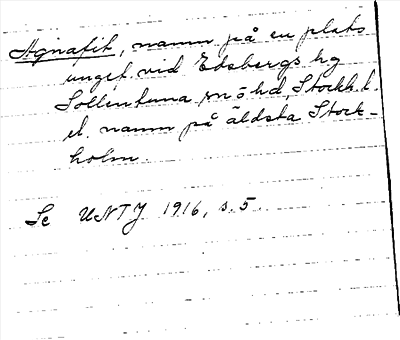 Agnafit, namn på en plats
ungef. vid Edsbergs hg
Sollentuna sn ö hd, Stockh. l.
el. namn på äldsta Stock-
holm.
Se UNTJ 1916, s. 5